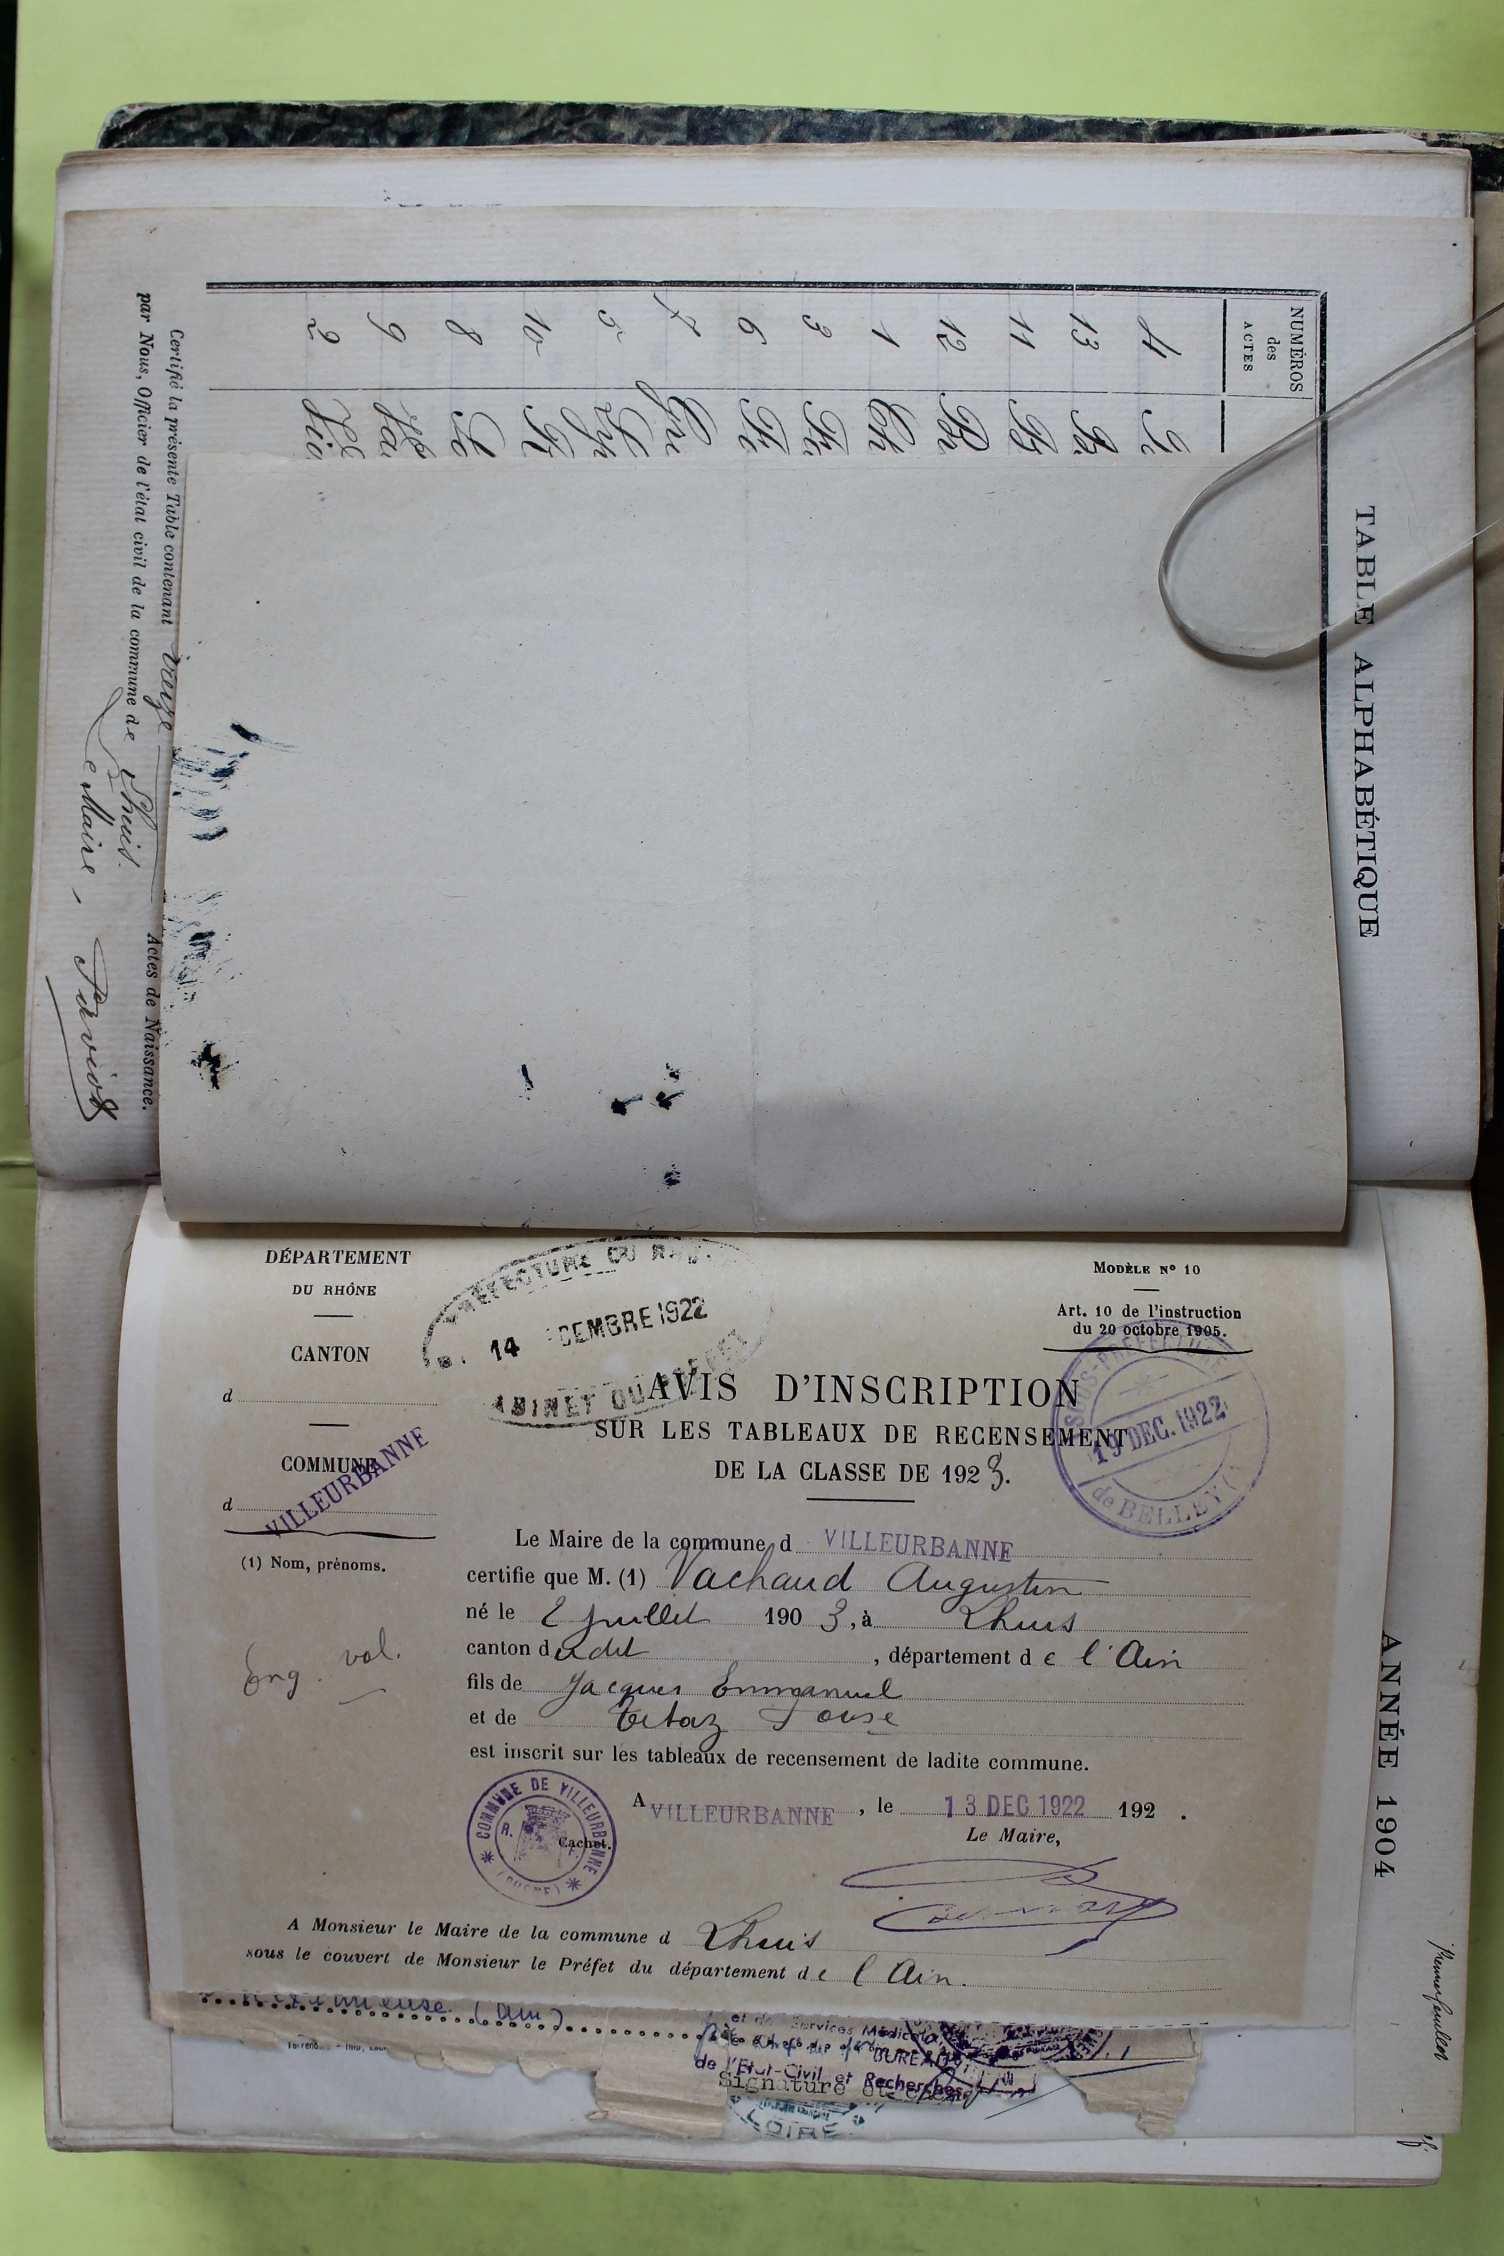 TABLE ALPHABÉTIQUE
NUMÉROS
des
ACTES
4
13
11
12
1
3
6
7
5
10
8
9
2
Certifié la présente Table contenant treize Actes de Naissance.
par Nous, Officier de l'état civil de la commune de Lhuis.
Le Maire,
Paviot
ANNÉE 1904
DÉPARTEMENT
DU RHÔNE
CANTON
d
COMMUNE
d VILLEURBANNE
(1) Nom, prénoms.
Eng. vol.
14 CEMBRE 1922
MODÈLE Nº 10
Art. 10 de l'instruction
du 20 octobre 1905.
SOUS-PRÉFECTURE
19 DEC. 1922
de BELLEY
AVIS D'INSCRIPTION
SUR LES TABLEAUX DE RECENSEMENT
DE LA CLASSE DE 1923.
Le Maire de la commune d VILLEURBANNE
certifie que M. (1) Vachaud Augustin
né le 2 Juillet 1903, à Lhuis
canton dudit, département de l'Ain
fils de Jacques Emmanuel
et de
est inscrit sur les tableaux de recensement de ladite commune.
A VILLEURBANNE, le 13 DEC 1922 192 .
Le Maire,
COMMUNE DE VILLEURBANNE
Cachet.
A Monsieur le Maire de la commune d Lhuis
sous le couvert de Monsieur le Préfet du département de l'Ain.
(Ain)
et de Services Médicaux
BUREAU
de l'Etat-Civil et Recherches
Signature
LOIRE